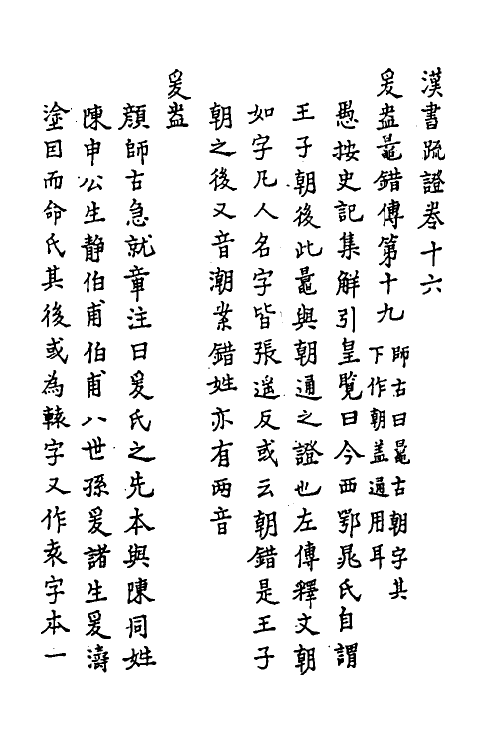 漢書疏證卷十六
爰盎鼂錯傳第十九
師古曰鼂古朝字其
下作朝盖通用耳
愚按史記集解引皇覽曰今西鄂晁氏自謂
王子朝後此鼂與朝通之證也左傳釋文朝
如字凡人名字皆張遥反或云朝錯是王子
朝之後又音潮案錯姓亦有两音
爰盎
顔師古急就章注曰爰氏之先本與陳同姓
陳申公生静伯甫伯甫八世孫爰諸生爰濤
塗因而命氏其後或為轅字又作袁字本一